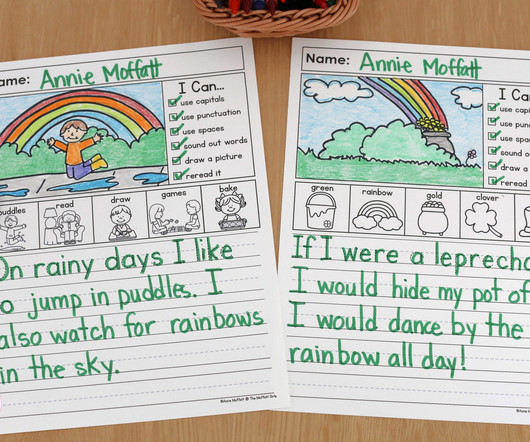 ame: Annie Moffatt
I Can...
use capitals
use punctuation
use spaces
sound out words
draw a picture
reread it
puddles read draw games bake
On rainy days I like
o jump in puddles. I
also watch for rainbows
in the sky.
©Annie Moffatt @ The Moffatt Girls
Name: Annie Moffatt
I Ca
use capitals
use pun
use spa
sound o
draw a
reread
green rainbow gold clover
If I were a leprecho
I would hide my pot of
I would dance by the
rainbow all day!
©Annie Moffa